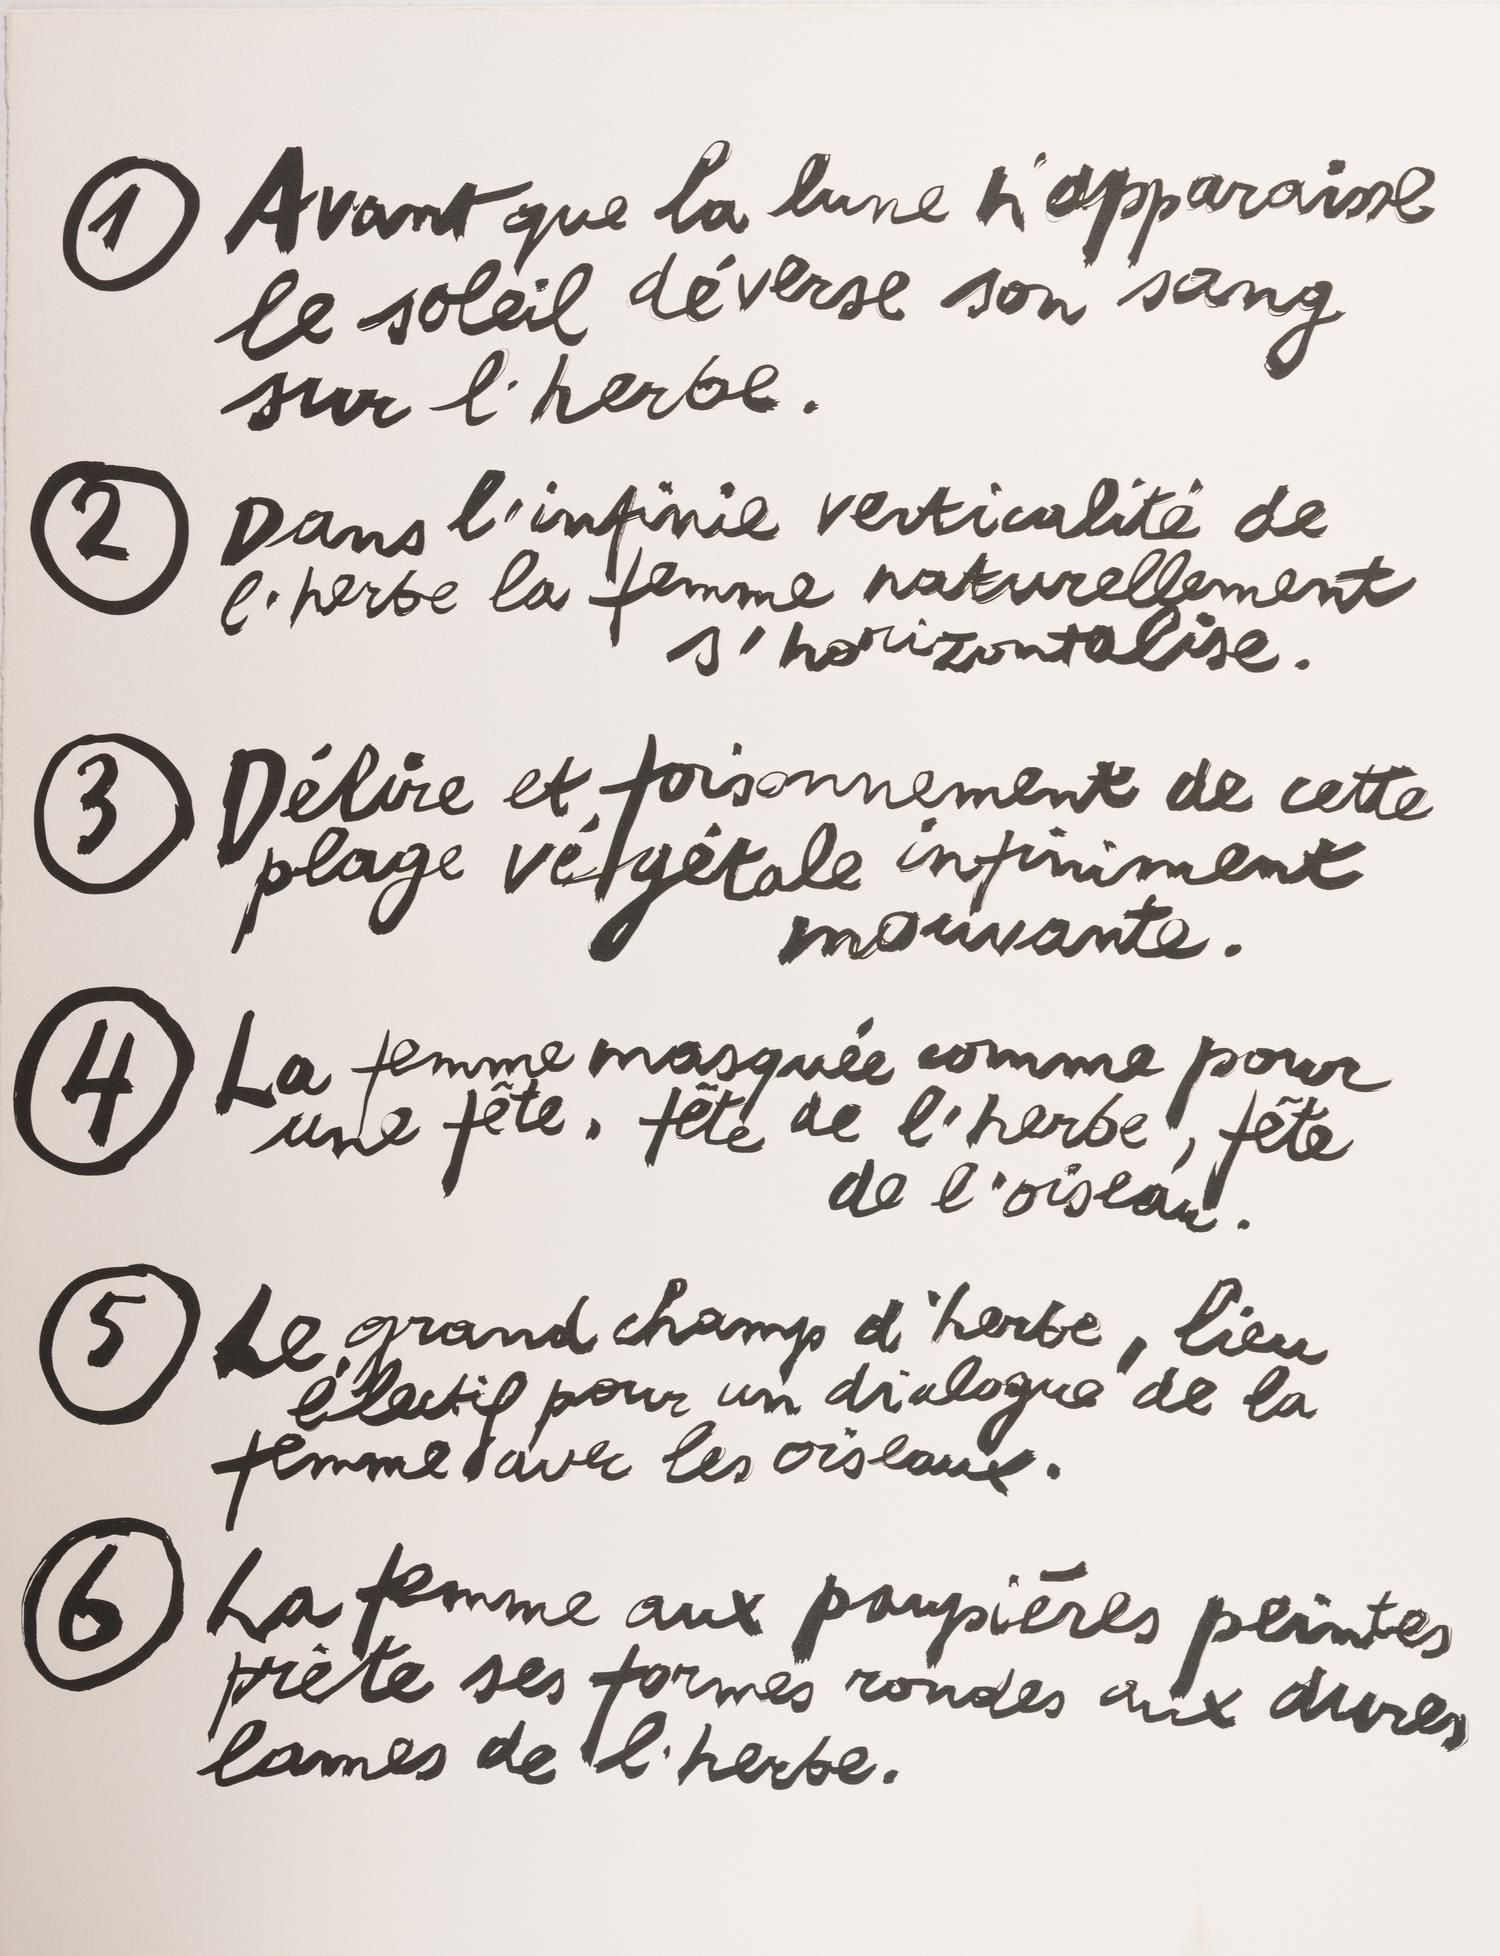 1 Avant que la lune n'apparaisse
le soleil déverse son sang
sur l'herbe.
2 Dans l'infinie verticalité de
l'herbe la femme naturellement
s'horizontalise.
3 Délire et foisonnement de cette
plage végétale infiniment
mouvante.
4 La femme masquée comme pour
une fête. fête de l'herbe, fête
de l'oiseau.
5 Le grand champ d'herbe, lieu
électif pour un dialogue de la
femme avec les oiseaux.
6 La femme aux paupières peintes
prête ses formes rondes aux dures
lames de l'herbe.